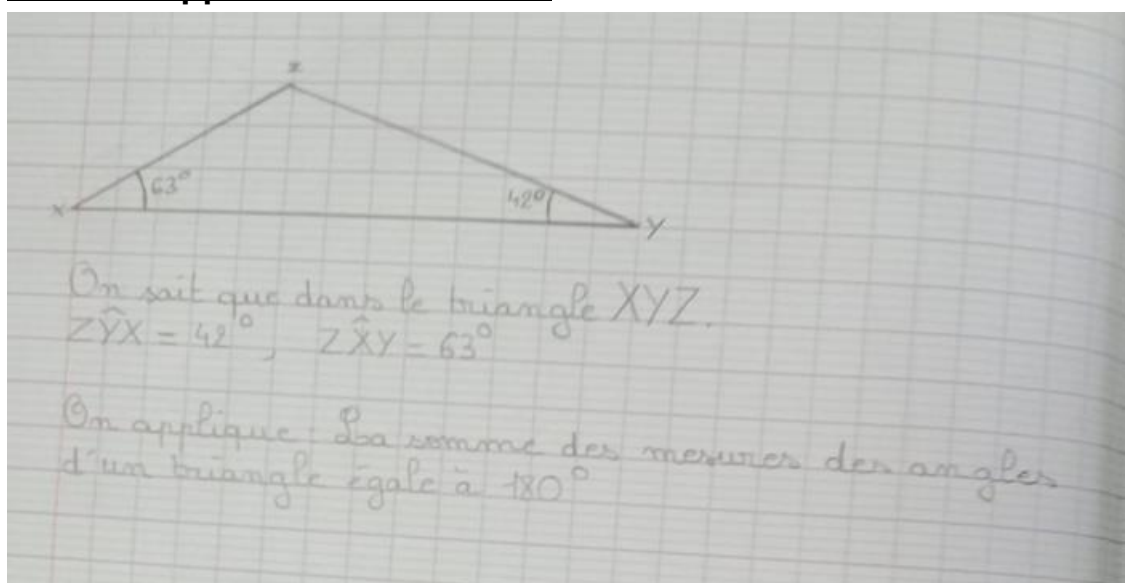 Z
63°
42°
X
Y
On sait que dans le triangle XYZ.
ZŶX = 42°, ZX̂Y = 63°
On applique : La somme des mesures des angles
d'un triangle égale à 180°